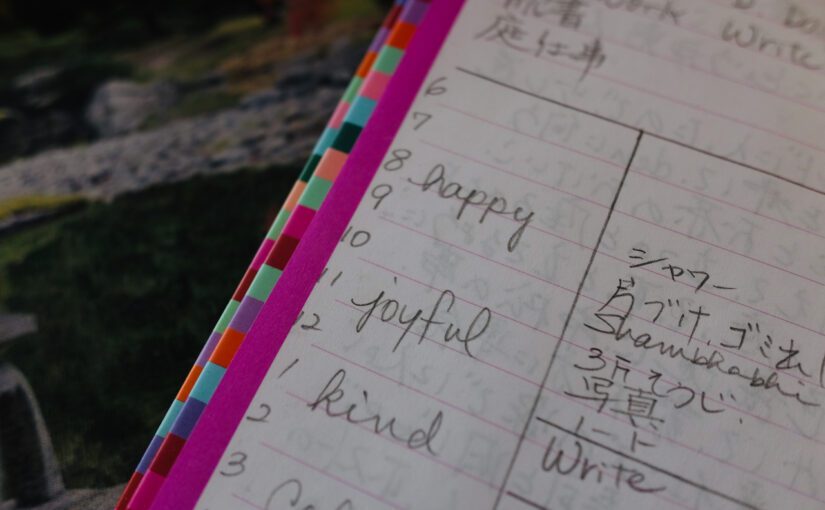 Work
Write
庭仕事
6
7
8 happy
9
10
11 joyful
12
1 kind
2
3
シャワー
片づけ、ゴミ出し
Shambhabhi
写真
ノート
Write